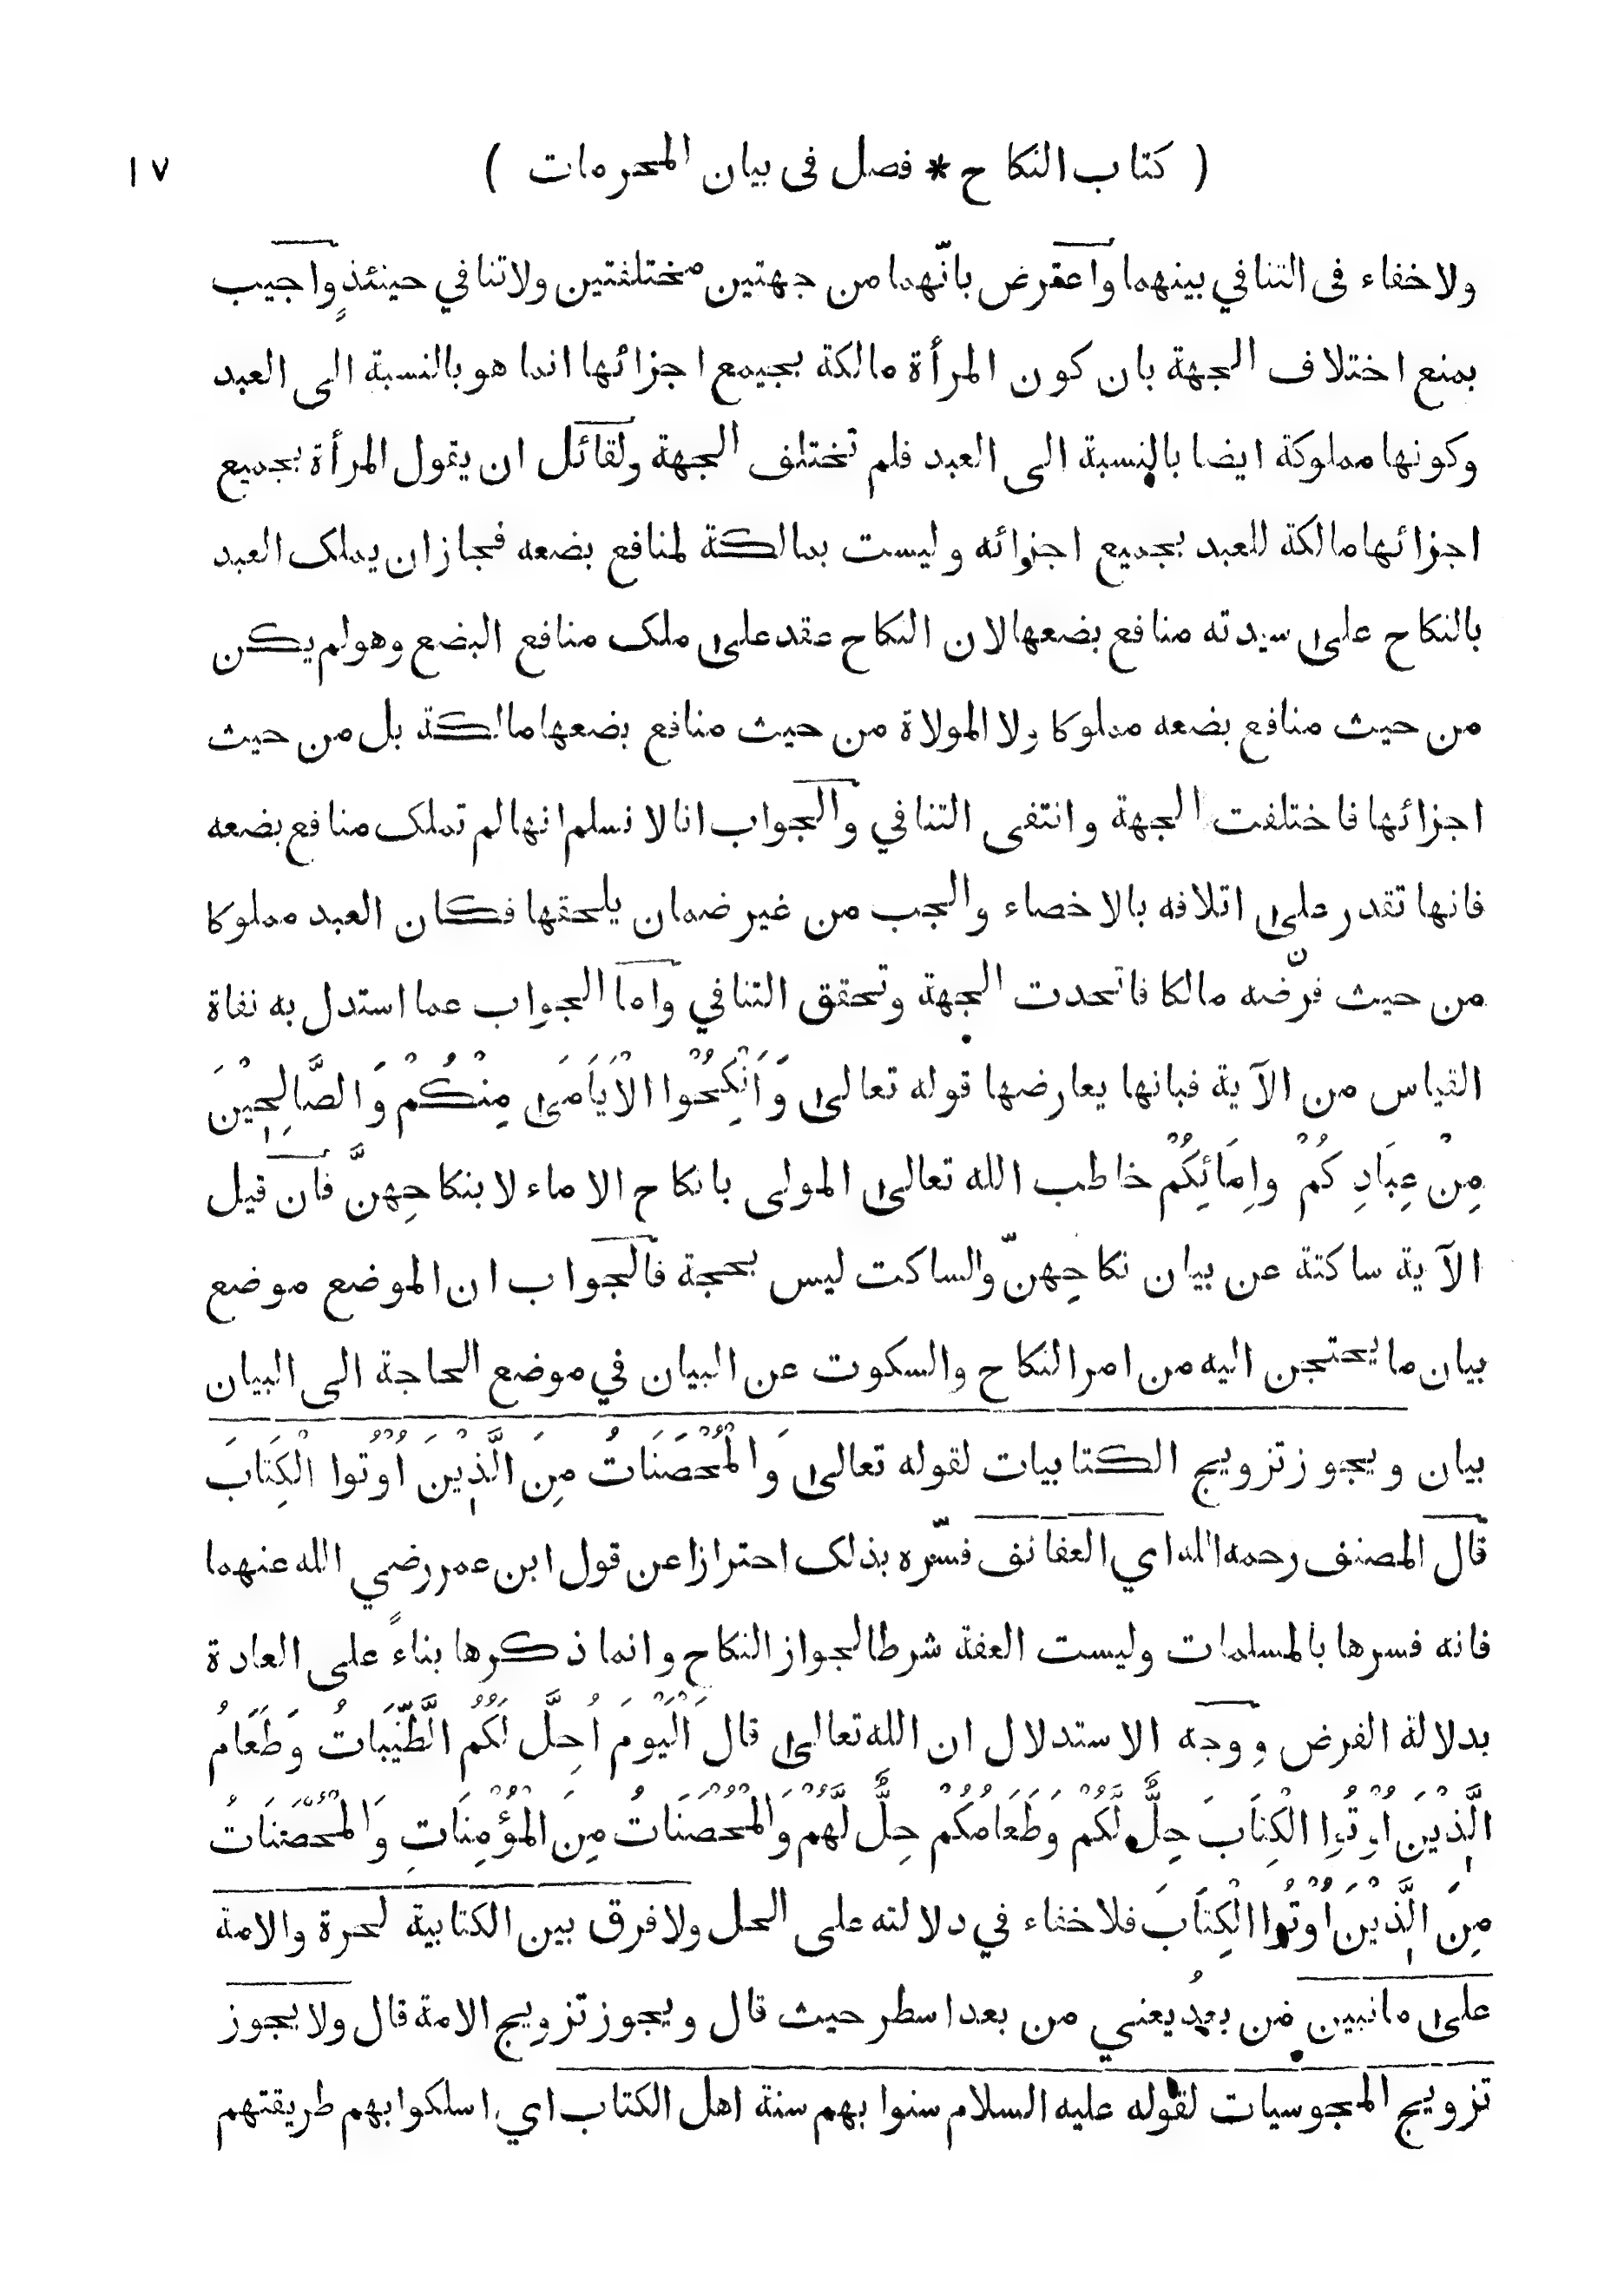 ( كتاب النكاح * فصل فى بيان المحرمات ) ١٧
ولا خفاء فى التنافي بينهما واعترض بانّهما من جهتين مختلفتين ولا تنافي حينئذٍ واجيب
بمنع اختلاف الجهة بان كون المرأة مالكة بجميع اجزائها انما هو بالنسبة الى العبد
وكونها مملوكة ايضا بالنسبة الى العبد فلم تختلف الجهة ولقائل ان يقول المرأة بجميع
اجزائها مالكة للعبد بجميع اجزائه وليست بمالكة لمنافع بضعه فجاز ان يملك العبد
بالنكاح على سيدته منافع بضعها لان النكاح عقد على ملك منافع البضع وهو لم يكن
من حيث منافع بضعه مملوكا ولا المولاة من حيث منافع بضعها مالكة بل من حيث
اجزائها فاختلفت الجهة وانتفى التنافي والجواب انا لا نسلم انها لم تملك منافع بضعه
فانها تقدر على اتلافه بالاخصاء والجب من غير ضمان يلحقها فكان العبد مملوكا
من حيث فرّضه مالكا فاتحدت الجهة وتحقق التنافي واما الجواب عما استدل به نفاة
القياس من الآية فبانها يعارضها قوله تعالى وَاَنْكِحُوا الْاَيَامَى مِنْكُمْ وَالصَّالِحِيْنَ
مِنْ عِبَادِكُمْ وَاِمَائِكُمْ خاطب الله تعالى المولى بانكاح الاماء لا بنكاحِهنَّ فان قيل
الآية ساكتة عن بيان نكاحِهنّ والساكت ليس بحجة فالجواب ان الموضع موضع
بيان ما يحتجن اليه من امر النكاح والسكوت عن البيان في موضع الحاجة الى البيان
بيان ويجوز تزويج الكتابيات لقوله تعالى وَالْمُحْصَنَاتُ مِنَ الَّذِيْنَ اُوْتُوا الْكِتَابَ
قال المصنف رحمه الله اي العفائف فسّره بذلك احترازا عن قول ابن عمر رضي الله عنهما
فانه فسرها بالمسلمات وليست العفة شرطا لجواز النكاح وانما ذكرها بناءً على العادة
بدلالة الفرض ووجه الاستدلال ان الله تعالى قال اَلْيَوْمَ اُحِلَّ لَكُمُ الطَّيِّبَاتُ وَطَعَامُ
الَّذِيْنَ اُوْتُوا الْكِتَابَ حِلٌّ لَّكُمْ وَطَعَامُكُمْ حِلٌّ لَّهُمْ وَالْمُحْصَنَاتُ مِنَ الْمُؤْمِنَاتِ وَالْمُحْصَنَاتُ
مِنَ الَّذِيْنَ اُوْتُوا الْكِتَابَ فلا خفاء في دلالته على الحل ولا فرق بين الكتابية لحرة والامة
على ما نبين من بعدُ يعني من بعد اسطر حيث قال ويجوز تزويج الامة قال ولا يجوز
تزويج المجوسيات لقوله عليه السلام سنوا بهم سنة اهل الكتاب اي اسلكوا بهم طريقتهم